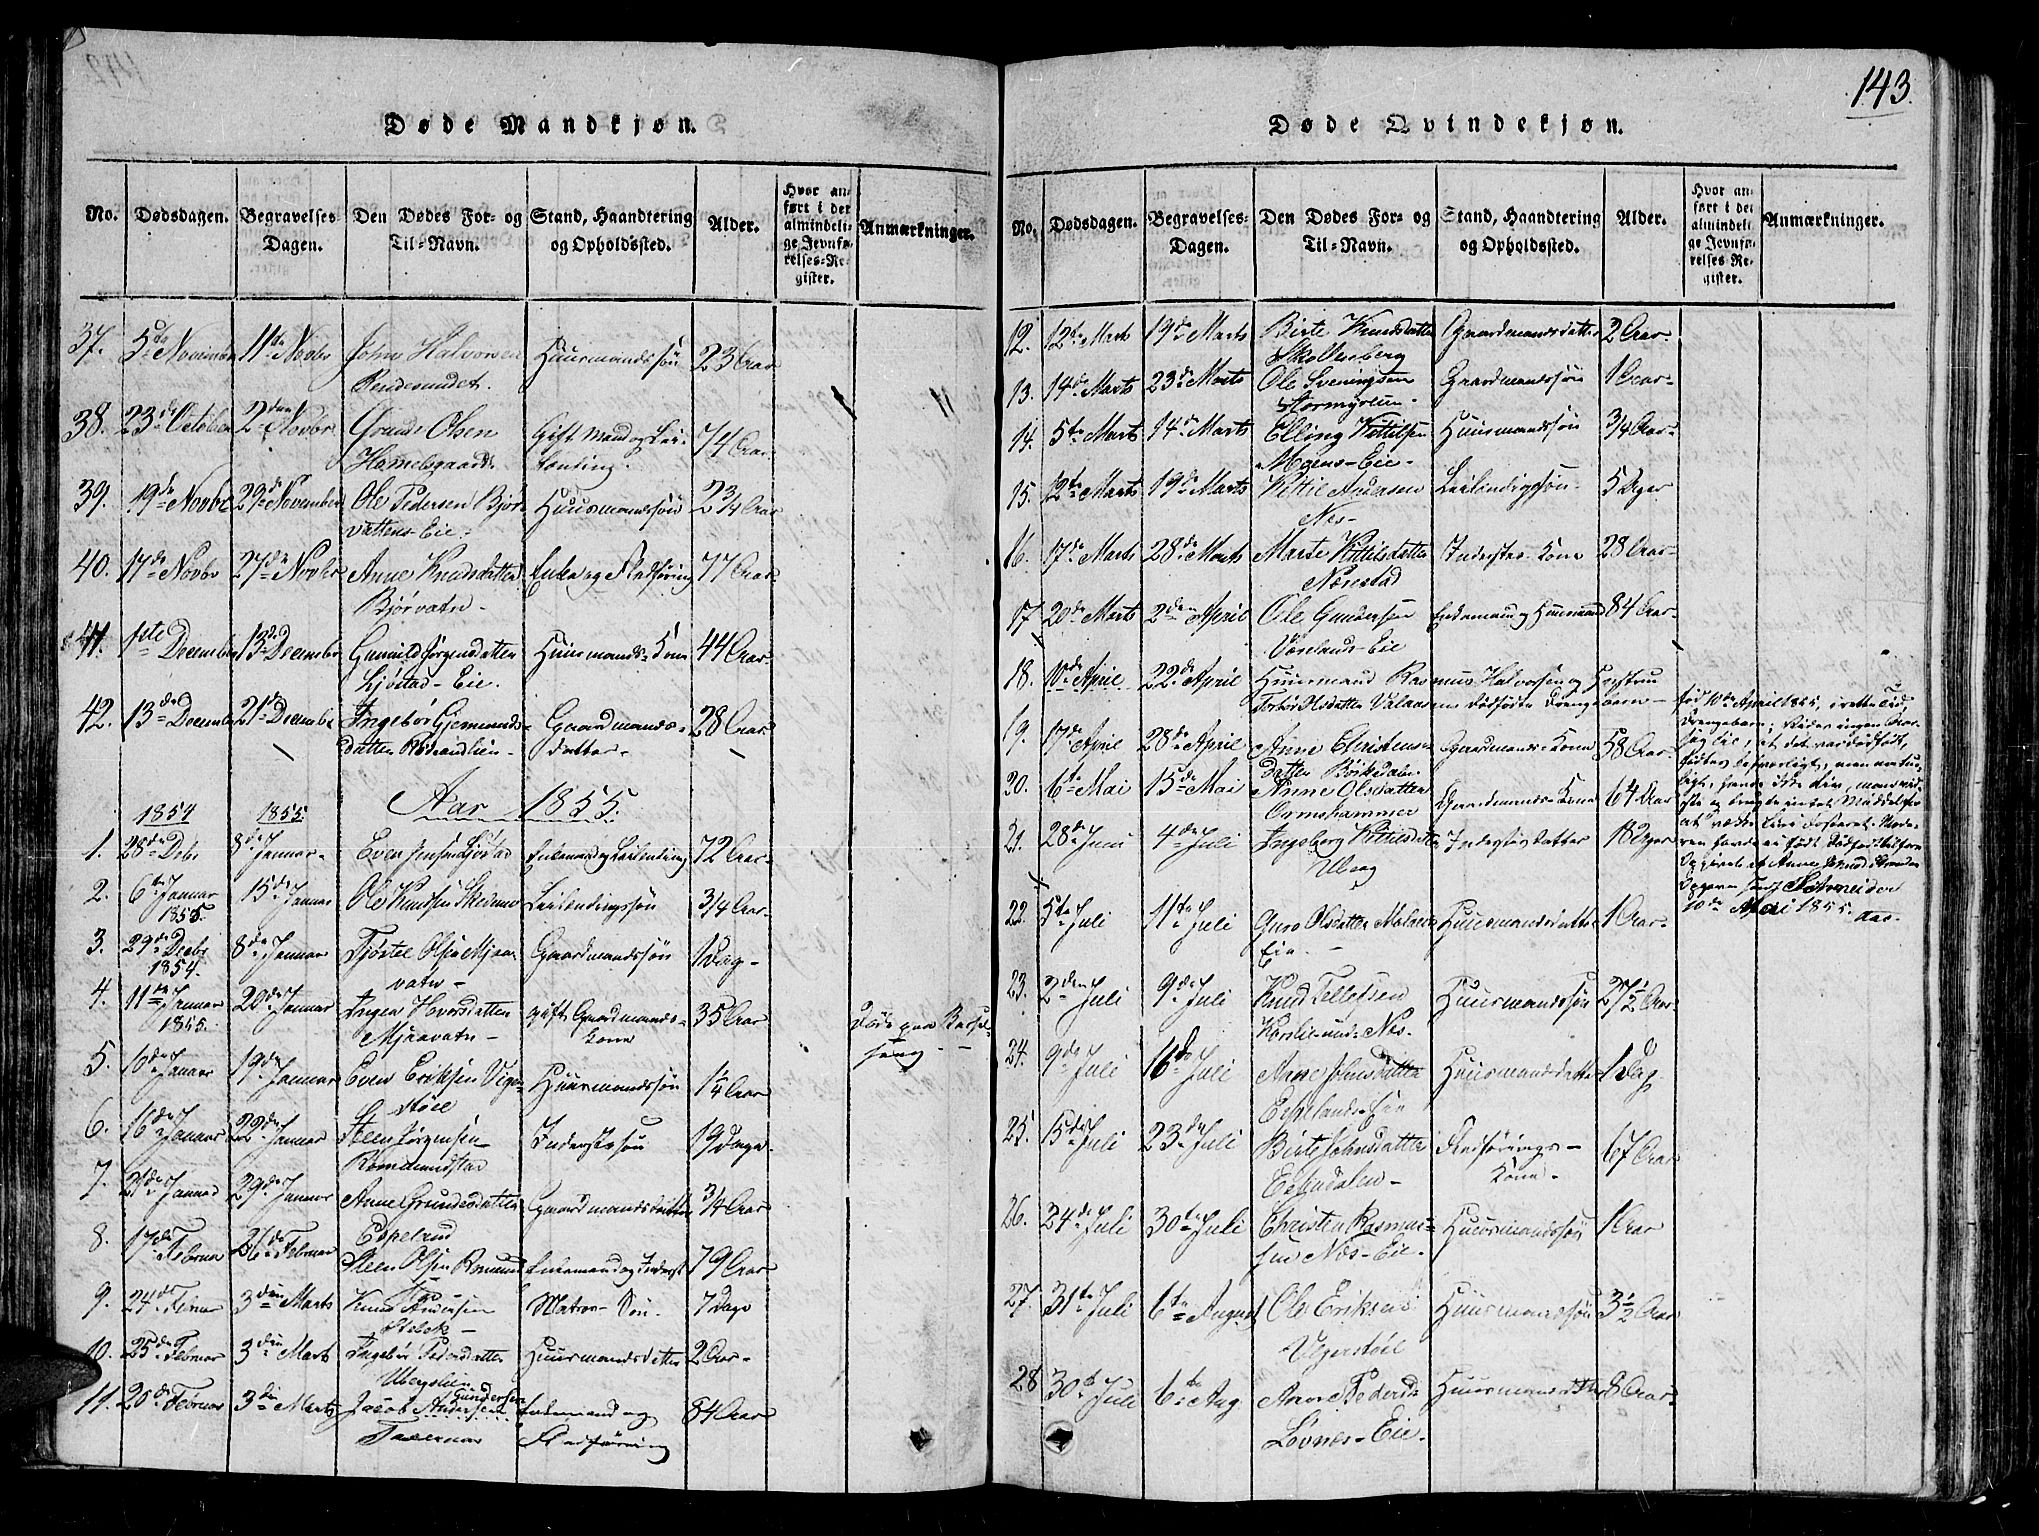 143.
Døde Mandkjøn.
No. Dødsdagen. Begravelses Dagen. Den Dødes For- og Til-Navn. Stand, Haandtering og Opholdssted. Alder. Hvor anført i det almindelige Jevnførelses-Register. Anmærkninger.
37. 5te November 11te Novbr John Halvorsen Huusmandssøn 23 Aar
38. 23de October 2den Novbr Grunde Olsen Gift Mand og Lei- 74 Aar
Hamelsgaard lænding.
39. 19de Novbr 29de November Ole Pedersen Bjør- Huusmandssøn 2 3/4 Aar
vattens-Eie.
40. 17de Novbr 27de Novbr Anne Knudsdatter Enke og Fledføring 77 Aar
Bjørvatn-
41. 1ste December 13de December Gunild Jørgensdatter Huusmands-Kone 44 Aar
Ljøstad-Eie.
42. 13de December 21de December Ingebor Gjermunds- Gaardmands- 28 Aar
datter datter-
1854 1855. Aar 1855.
1. 28de Debr 8de Januar- Even Jensen Ljøstad Enkemand og Leilending 72 Aar-
2. 6te Januar 15de Januar Ole Knudsen Leilendingssøn 3/4 Aar-
1855.
3. 29de Decbr 8de Januar Tjøstel Olsen Mjaa- Gaardmandssøn 1 Dag-
1854. vatn-
4. 11te Januar 20de Januar Ingea Hovrsdatter gift Gaardmands- 35 Aar Døde paa Barsel-
1855. Mjaavatn- kone seng.-
5. 10de Januar 19de Januar Even Eriksen Vige- Huusmandssøn 1 1/4 Aar
støel
6. 16de Januar 22de Januar Steen Jørgensen Inderstesøn 19 Dage
Romundstad
7. 21de Januar 29de Januar Anne Grundesdatter Gaardmandsdatter 3/4 Aar
Espeland
8. 17de Februar 26de Februar Steen Olsen Enkemand og Inderst 79 Aar
9. 24de Februar 3den Marts Knud Andersen Matros-Søn 7 Dage
Stebek-
10. 25de Februar 3den Marts Ingebor Pedersdatter Huusmandsdatter 2 Aar-
Ubergslien
11. 20de Februar 3die Marts Jacob Andersen Gundersen Enkemand og 84 Aar
Fledføring
Døde Qvindekjøn.
No. Dødsdagen. Begravelses-Dagen. Den Dødes For- og Til-Navn. Stand, Haandtering og Opholdssted. Alder. Hvor anført i det almindelige Jevnførelses Register. Anmærkninger.
12. 12te Marts 19de Marts Birte Knudsdatter Gaardmandsdatter 2 Aar-
Skollenberg
13. 14de Marts 23de Marts Ole Sveningsen Gaardmandssøn 1 Aar-
Stormyren-
14. 5te Marts 14de Marts Elling Kittilsen Huusmandssøn 3/4 Aar-
Moens-Eie-
15. 12te Marts 19de Marts Kittil Andersen Leilendigsøn- 5 Uger
Nes-
16. 17de Marts 28de Marts Marte Kittilsdatter Inderstes-Kone 28 Aar-
Nærestad
17. 20de Marts 2den April Ole Gundersen Enkemand og Huusmand 84 Aar-
18. 10de April 22de April Huusmand Rasmus Halvorsen og Hustru
Torbor Olsdatter dødfødte Drengebarn-
19. 17de April 28de April Anne Christens- Gaardmands-Kone 58 Aar-
datter
20. 6te Mai 15de Mai Anne Olsdatter Gaardmands-Kone 64 Aar
Ormshammer
21. 28de Juni 4de Juli Ingeborg Kittilsdatter Inderstes datter 18 Uger
Uberg
22. 5te Juli 11te Juli Guro Olsdatter Huusmandsdatter 1 Aar-
Eie-
23. 2den Juli 9de Juli Knud Tellefsen Huusmandssøn 27 1/2 Aar
Karslie-und-Nes-
24. 9de Juli 16de Juli Anne Johnsdatter Huusmandsdatter 1 Dag.
25. 15de Juli 23de Juli Birte Johnsdatter Fledførings- 67 Aar
Kone-
26. 24de Juli 30te Juli Christen Rasmus- Huusmandssøn 1 Aar
sen Nes-Eie-
27. 31te Juli 6te August Ole Eriksen Huusmandssøn 3 1/2 Aar
Vegerstøel
28 30te Juli 6te Aug. Anne Peders- Huusmandsdatter 8 Aar-
Løvnes-Eie.
født 10de April 1855, i rette Tid,
Drengebarn; Vides ingen Aar-
sag til, at det var dødfødt,
10de Mai 1855.